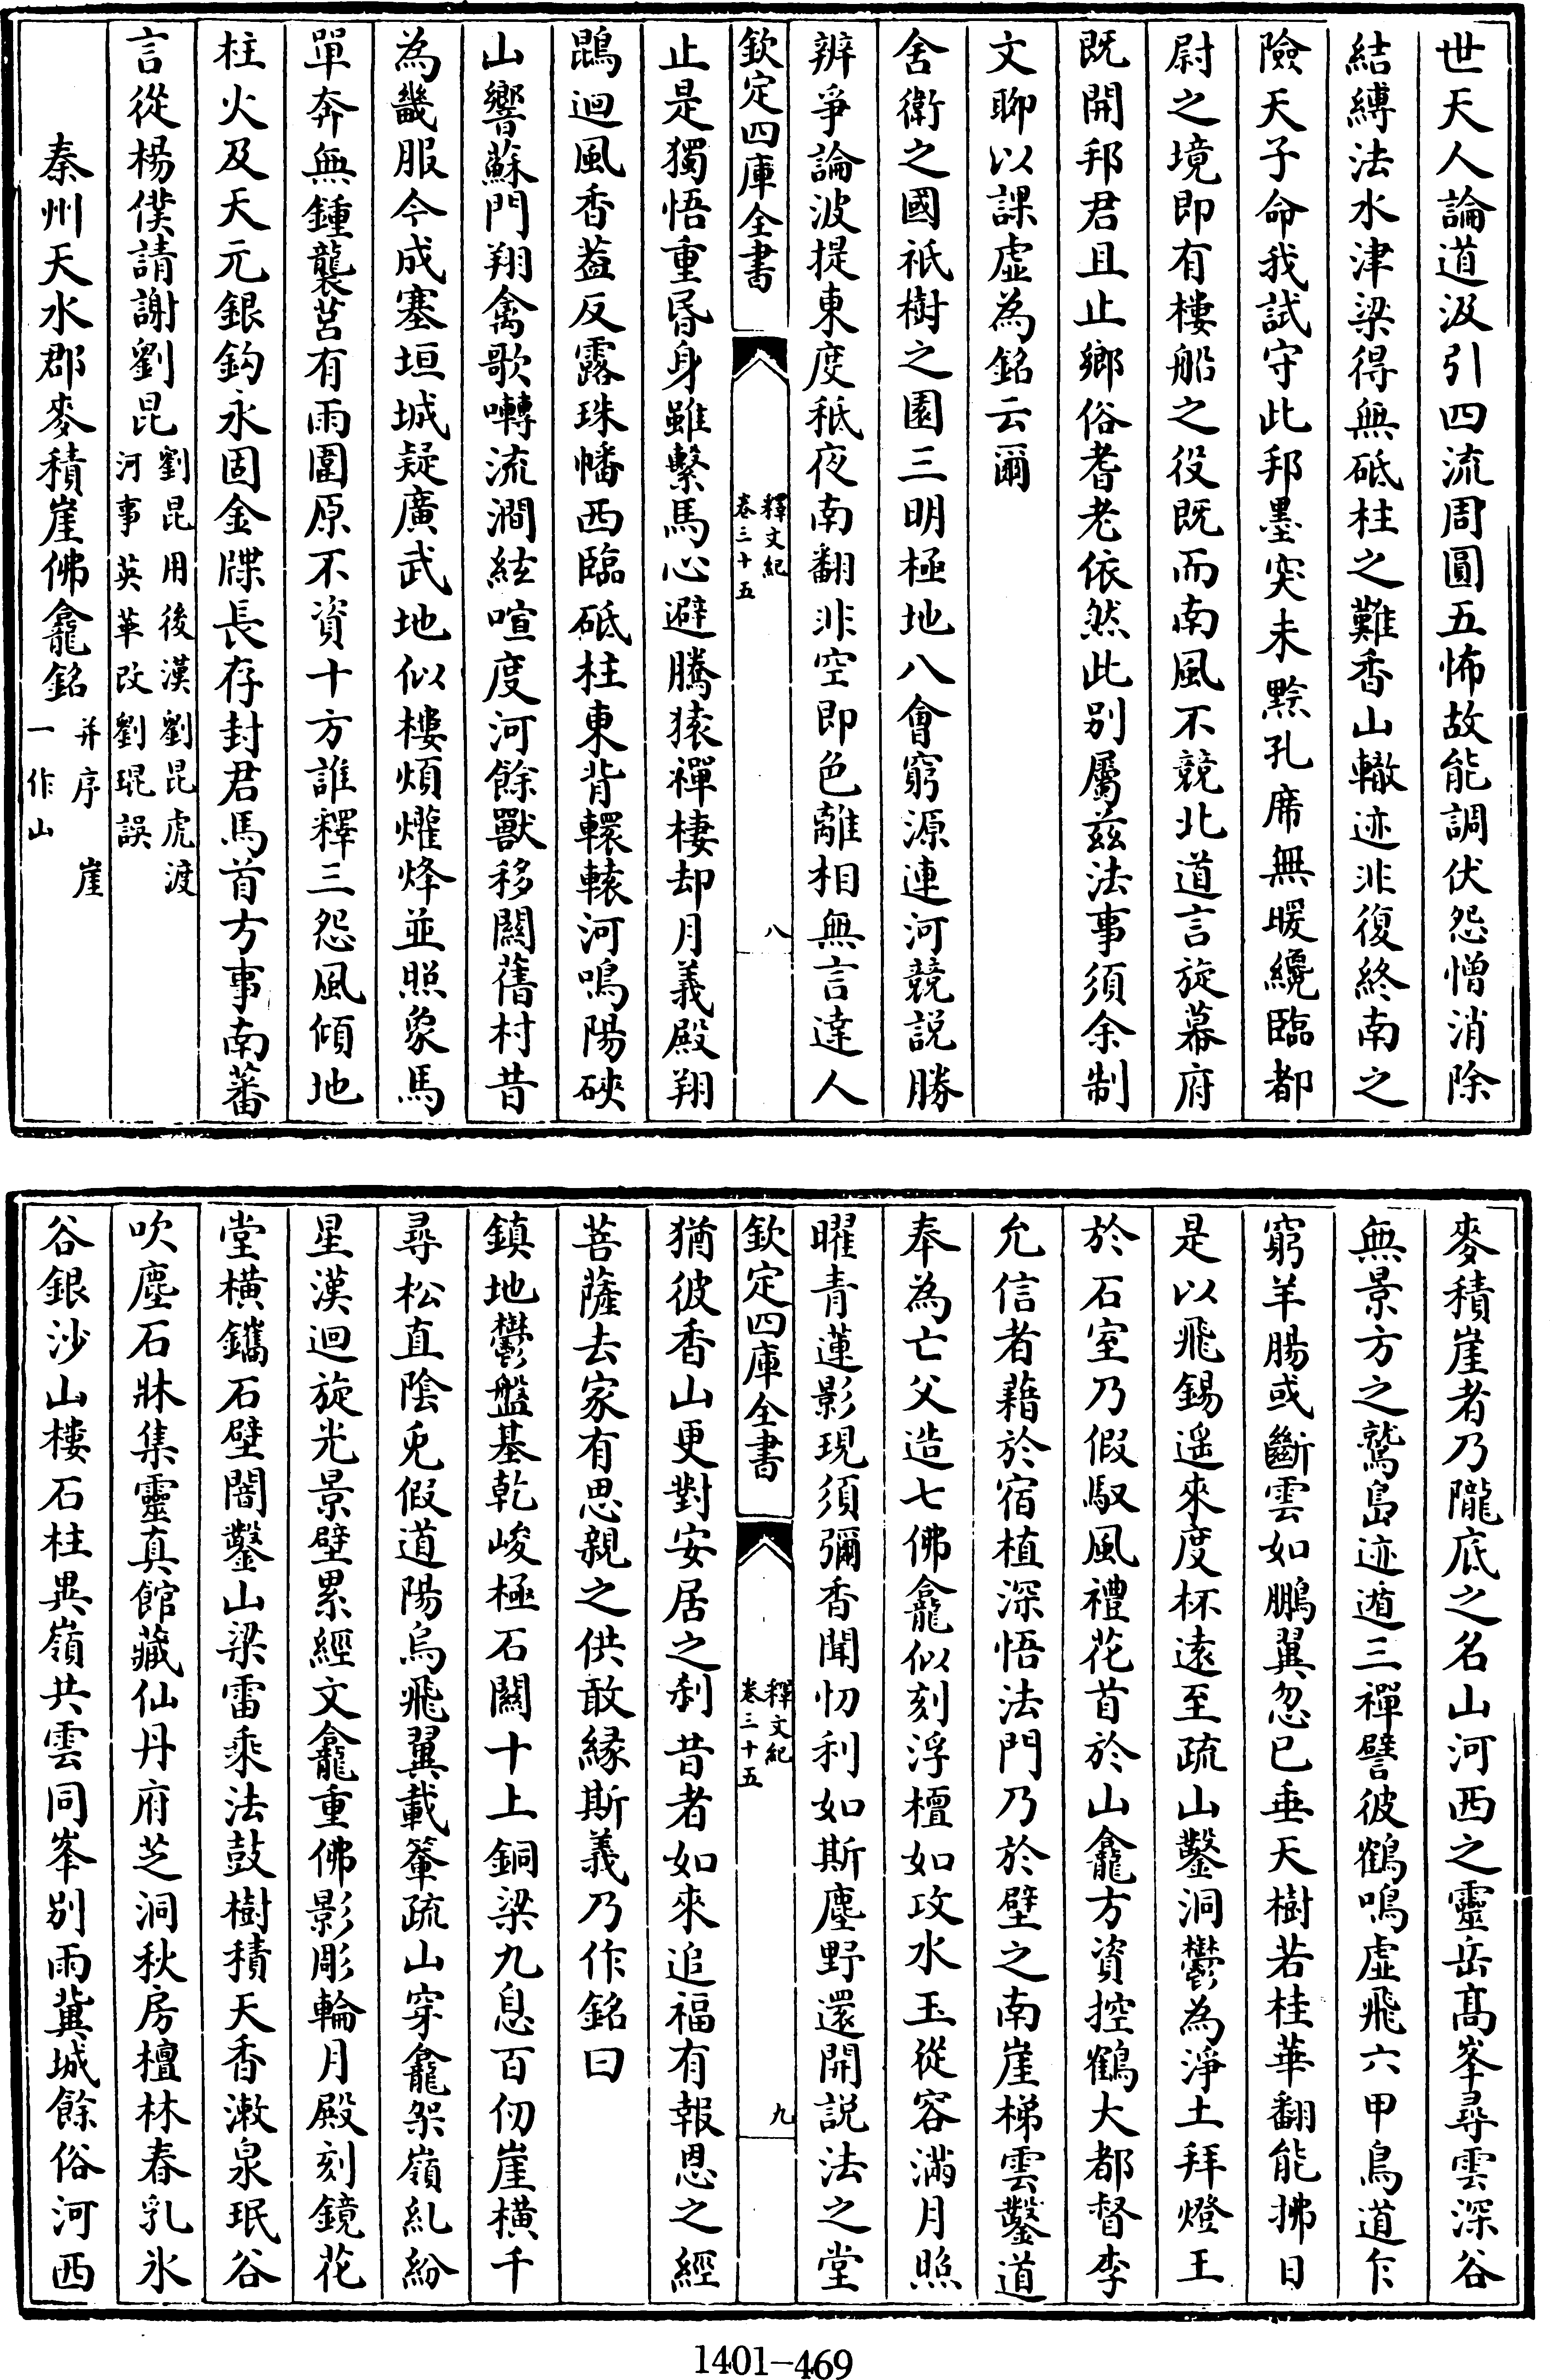 世天人論道汲引四流周圓五怖故能調伏怨憎消除
結縛法水津梁得無砥柱之難香山轍迹非復終南之
險天子命我試守此邦墨突未黔孔席無暖纔臨都
尉之境即有樓船之役既而南風不競北道言旋幕府
既開邦君且止鄉俗耆老依然此别屬兹法事須余制
文聊以課虚為銘云爾
舍衛之國祇樹之園三明極地八會窮源連河競説勝
辨爭論波提東度秪夜南翻非空即色離相無言達人
欽定四庫全書
釋文紀
卷三十五
八
止是獨悟重昏身雖繫馬心避騰猿禪棲却月義殿翔
鵾迴風香葢反露珠幡西臨砥柱東背轘轅河鳴陽硤
山響蘇門翔禽歌囀流澗絃喧度河餘獸移闗舊村昔
為畿服今成塞垣城疑廣武地似樓煩燿烽並照象馬
單奔無鍾襲莒有雨圍原不資十方誰釋三怨風傾地
柱火及天元銀鈎永固金牒長存封君馬首方事南蕃
言從楊僕請謝劉昆
劉昆用後漢劉昆虎渡
河事英華改劉琨誤
秦州天水郡麥積崖佛龕銘
并序 崖
一作山
麥積崖者乃隴底之名山河西之靈岳髙峯尋雲深谷
無景方之鷲島迹遁三禪譬彼鶴鳴虚飛六甲鳥道乍
窮羊腸或斷雲如鵬翼忽已垂天樹若桂華翻能拂日
是以飛錫遥來度杯遠至疏山鑿洞鬱為淨土拜燈王
於石室乃假馭風禮花首於山龕方資控鶴大都督李
允信者藉於宿植深悟法門乃於壁之南崖梯雲鑿道
奉為亡父造七佛龕似刻浮檀如攻水玉從容滿月照
曜青蓮影現須彌香聞忉利如斯塵野還開説法之堂
欽定四庫全書
釋文紀
卷三十五
九
猶彼香山更對安居之刹昔者如來追福有報恩之經
菩薩去家有思親之供敢緣斯義乃作銘曰
鎮地鬱盤基乾峻極石闗十上銅梁九息百仞崖横千
尋松直陰兎假道陽烏飛翼載輂疏山穿龕架嶺糺紛
星漢迴旋光景壁累經文龕重佛影彫輪月殿刻鏡花
堂横鐫石壁闇鑿山梁雷乘法鼓樹積天香漱泉珉谷
吹塵石牀集靈真館藏仙丹府芝洞秋房檀林春乳氷
谷銀沙山樓石柱異嶺共雲同峯别雨冀城餘俗河西
1401—469